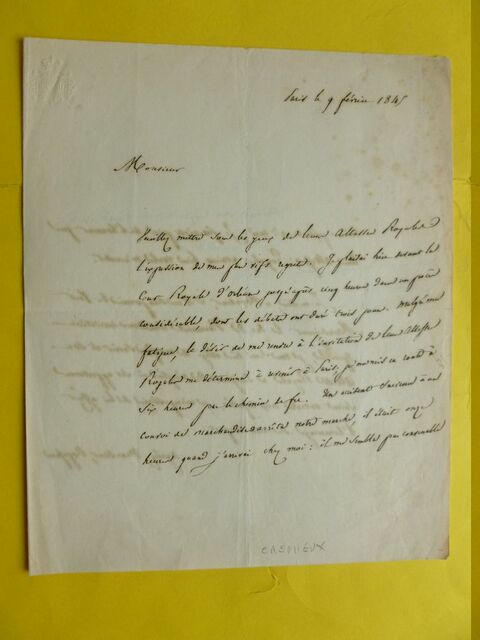 Paris le 9 février 1845
Monsieur
Veuillez mettre sous les yeux de leurs Altesses Royales
l'expression de mes plus vifs regrets. Je plaidai hier devant la
Cour Royale d'Orléans jusqu'après cinq heures dans un procès
considérable, dont les débats ont duré trois jours. Malgré ma
fatigue, le désir de me rendre à l'invitation de leurs Altesses
Royales me détermina à revenir à Paris, je me mis en route à
six heures par le chemin de fer. Un accident survenu à un
convoi de marchandises arrêta notre marche, il était onze
heures quand j'arrivai chez moi : il me sembla peu convenable
CREMIEUX